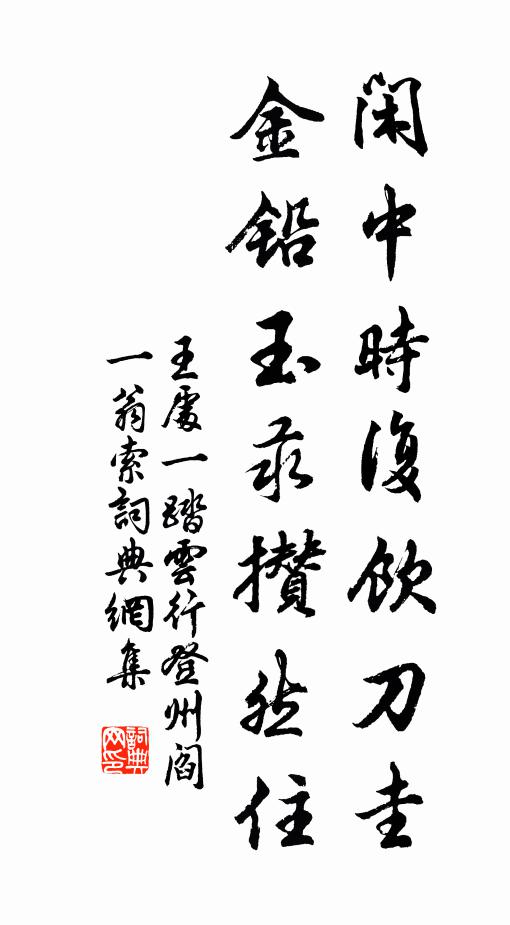 閑中時復飲刀圭
金鉛玉汞攢然住
王處一踏雲行登州閻
一翁索詞典網集
詞典網印